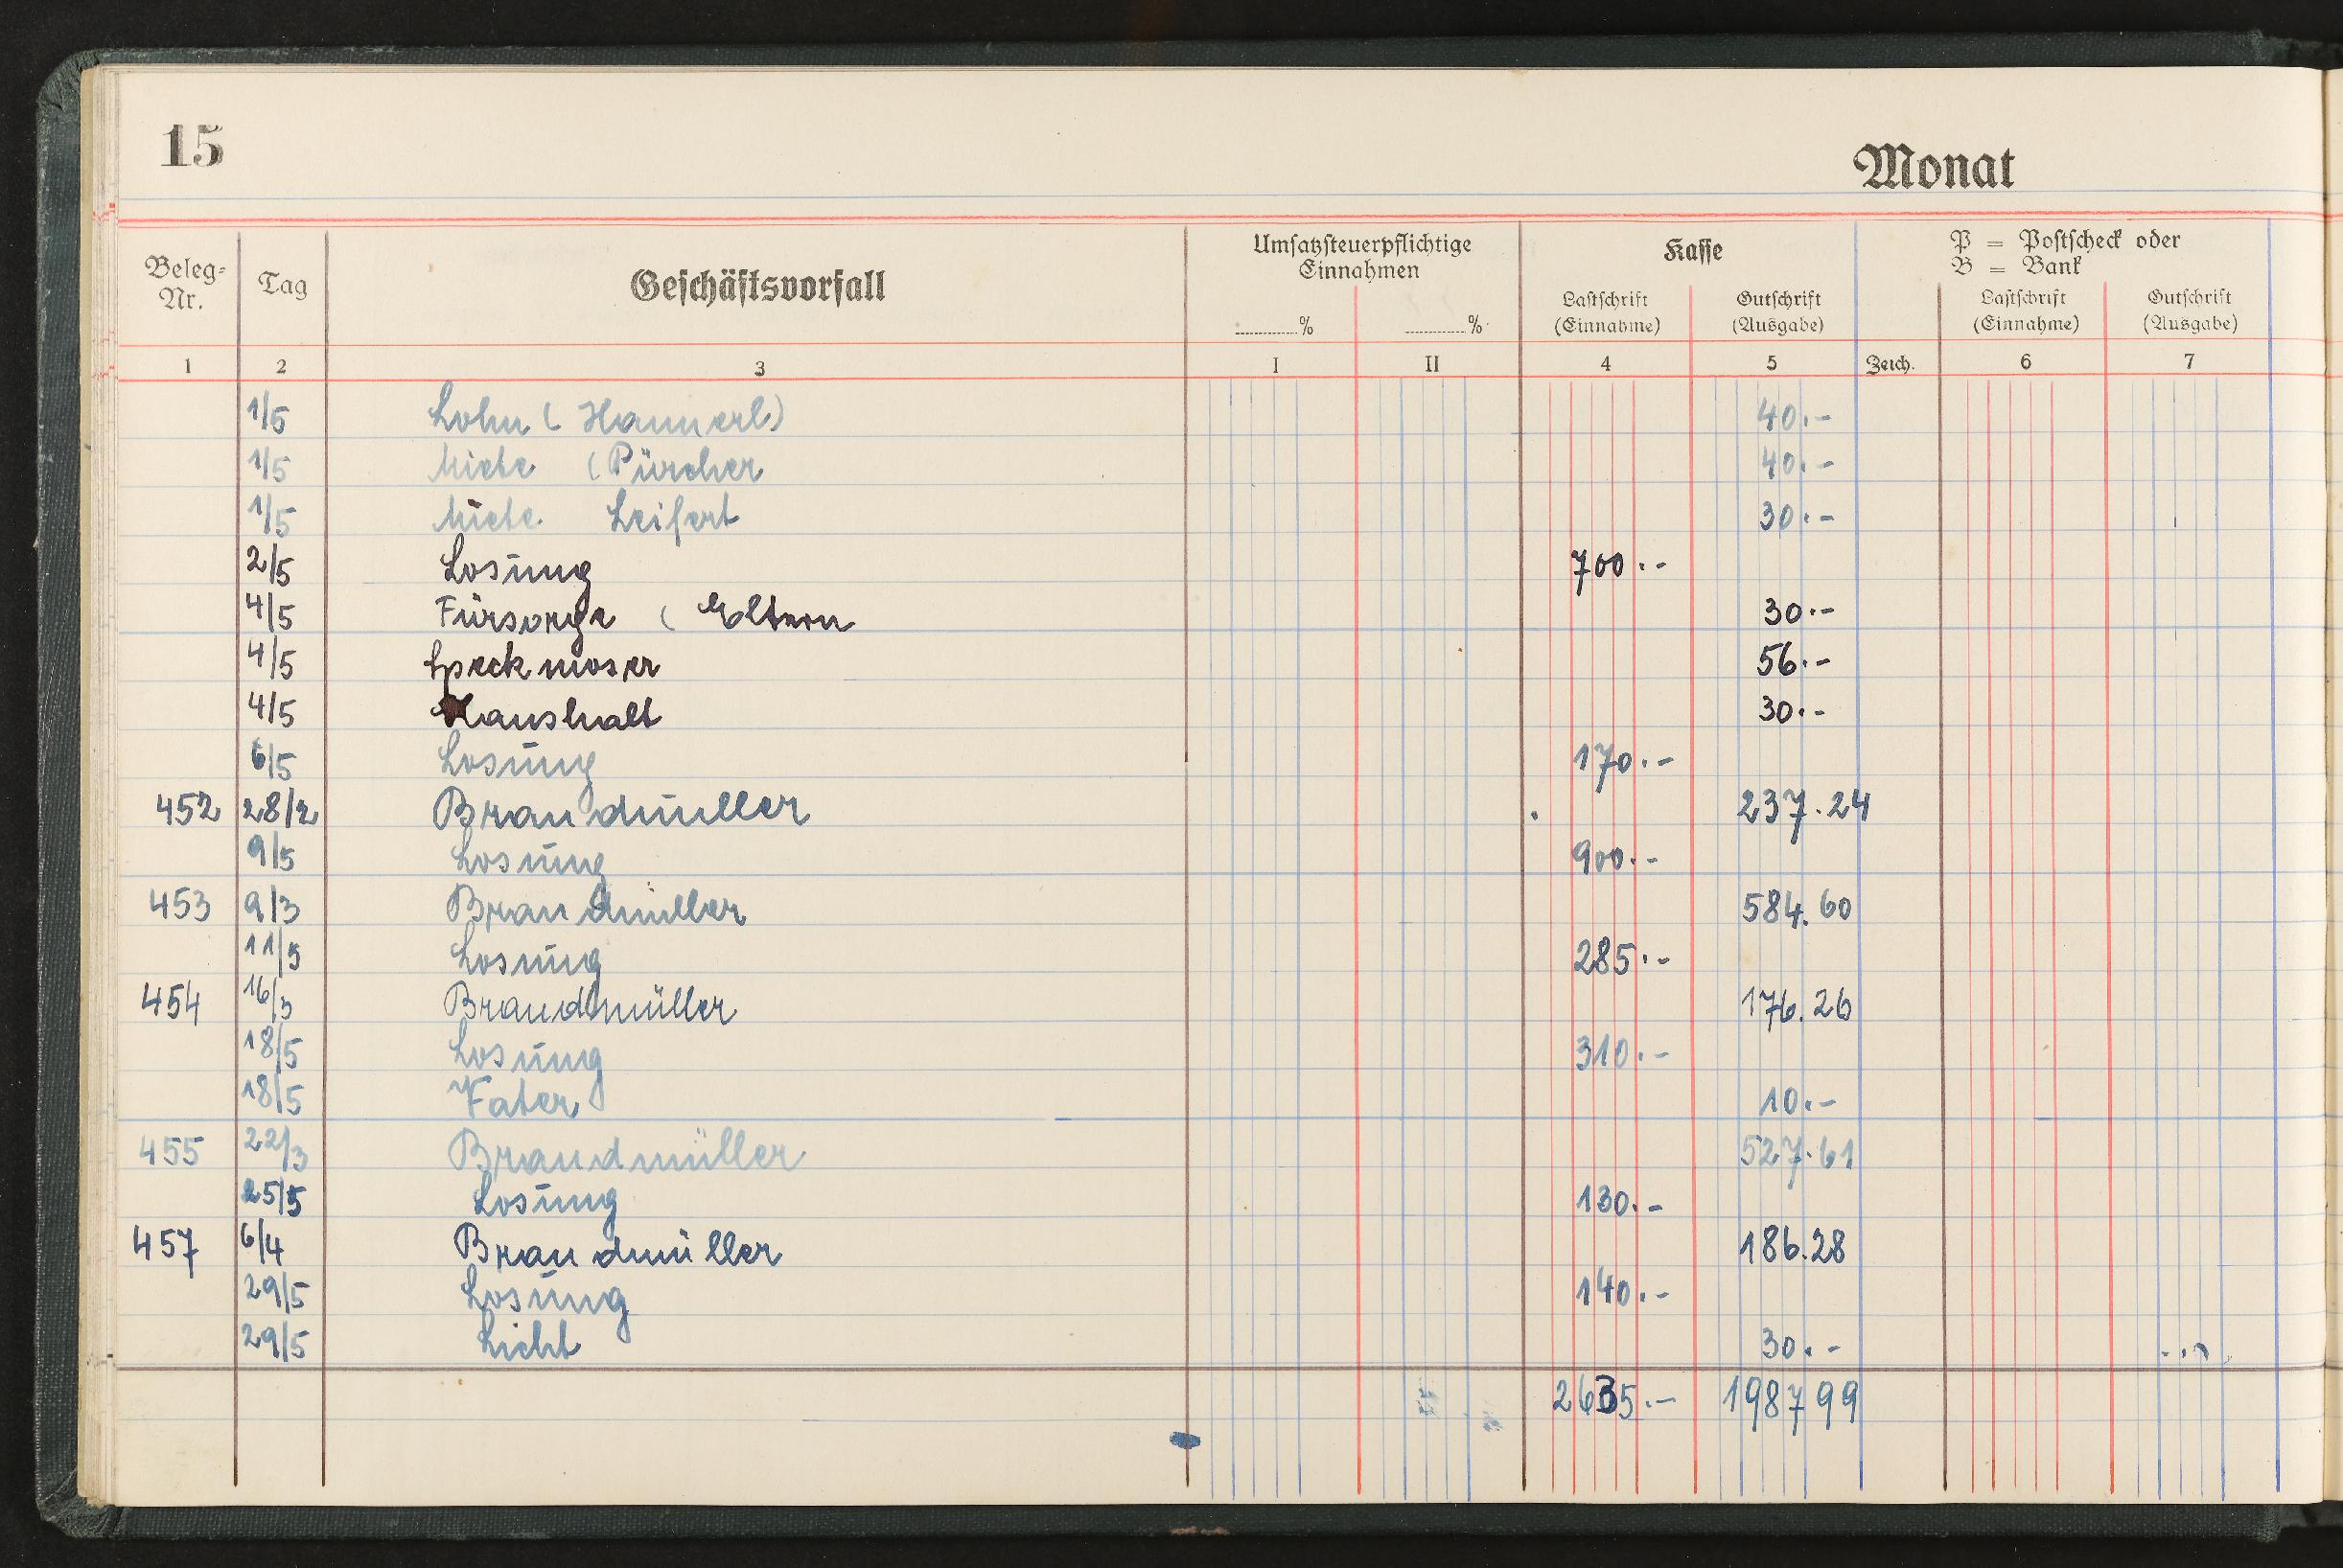 15
Monat
Beleg-Nr. Tag Geschäftsvorfall Umsatzsteuerpflichtige Einnahmen Kasse P = Postscheck oder B = Bank
%  % Lastschrift (Einnahme) Gutschrift (Ausgabe) Lastschrift (Einnahme) Gutschrift (Ausgabe)
1 2 3 I II 4 5 Zeich. 6 7
1/5 Lohn ( Hannerl) 40.-
1/5 Miete (Pürcher 40.-
1/5 Miete Leifert 30.-
2/5 Losung 700.-
4/5 Fürsorge ( Eltern 30.-
4/5 Speckmoser 56.-
4/5 Haushalt 30.-
6/5 Losung 170.-
452 28/2 Brandmüller 237.24
9/5 Losung 900.-
453 9/3 Brandmüller 584.60
11/5 Losung 285.-
454 16/3 Brandmüller 176.26
18/5 Losung 310.-
18/5 Vater 10.-
455 22/3 Brandmüller 527.61
25/5 Losung 130.-
457 6/4 Brandmüller 186.28
29/5 Losung 140.-
29/5 Licht 30.-
2635.- 1987 99